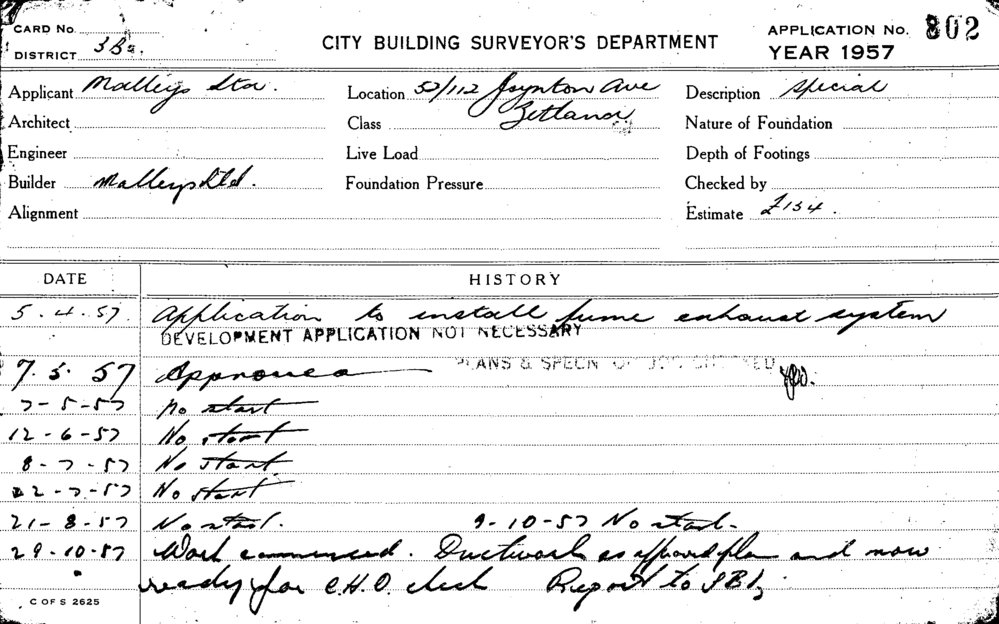 CARD No.
DISTRICT 3Ba.
CITY BUILDING SURVEYOR'S DEPARTMENT
APPLICATION No. 802
YEAR 1957
Applicant Malleys Ltd. Location 52/112 Joynton Ave Description Special
Architect Class Zetland Nature of Foundation
Engineer Live Load Depth of Footings
Builder Malleys Ltd. Foundation Pressure Checked by
Alignment Estimate £154.
DATE HISTORY
5.4.57. Application to install fume exhaust system
DEVELOPMENT APPLICATION NOT NECESSARY
7.5.57 Approved PLANS & SPECN
7-5-57 No start
12-6-57 No start
8-7-57 No start
22-7-57 No start
21-8-57 No start. 9-10-57 No start.
29-10-57 Work commenced. Ductwork as approved plan and now
ready for C.H.O. check Report to SBI
C OF S 2625